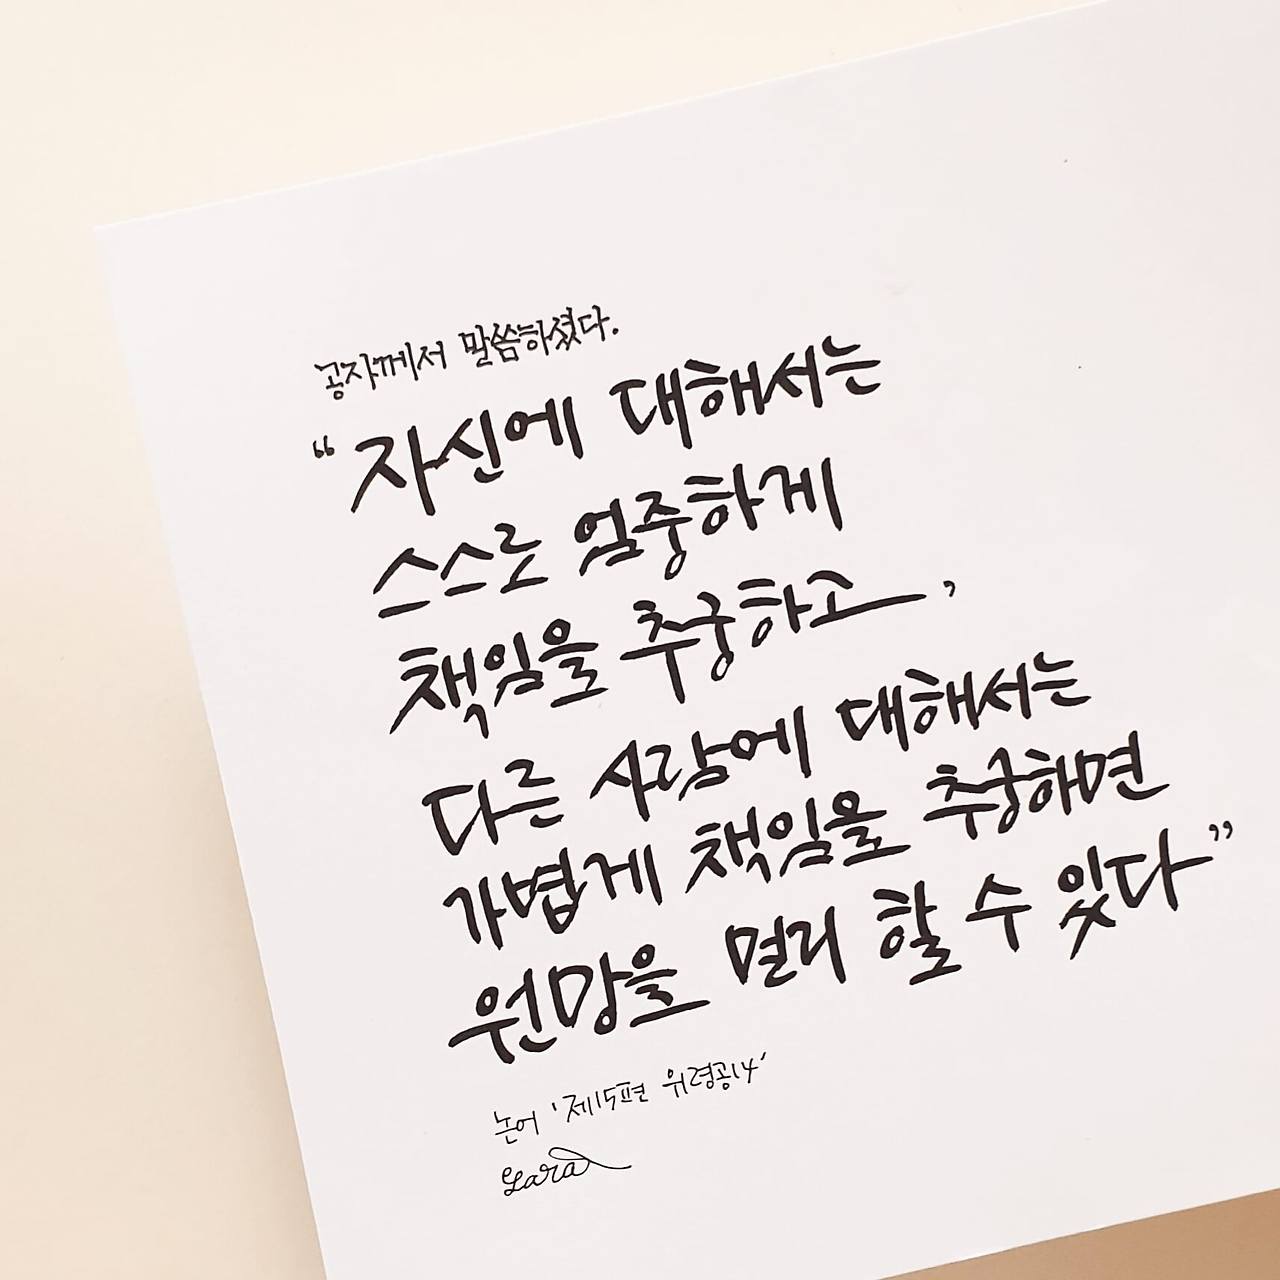 공자께서 말씀하셨다.
“자신에 대해서는
스스로 엄중하게
책임을 추궁하고,
다른 사람에 대해서는
가볍게 책임을 추궁하면
원망을 멀리 할 수 있다”
논어 '제15편 위령공14'
Lara